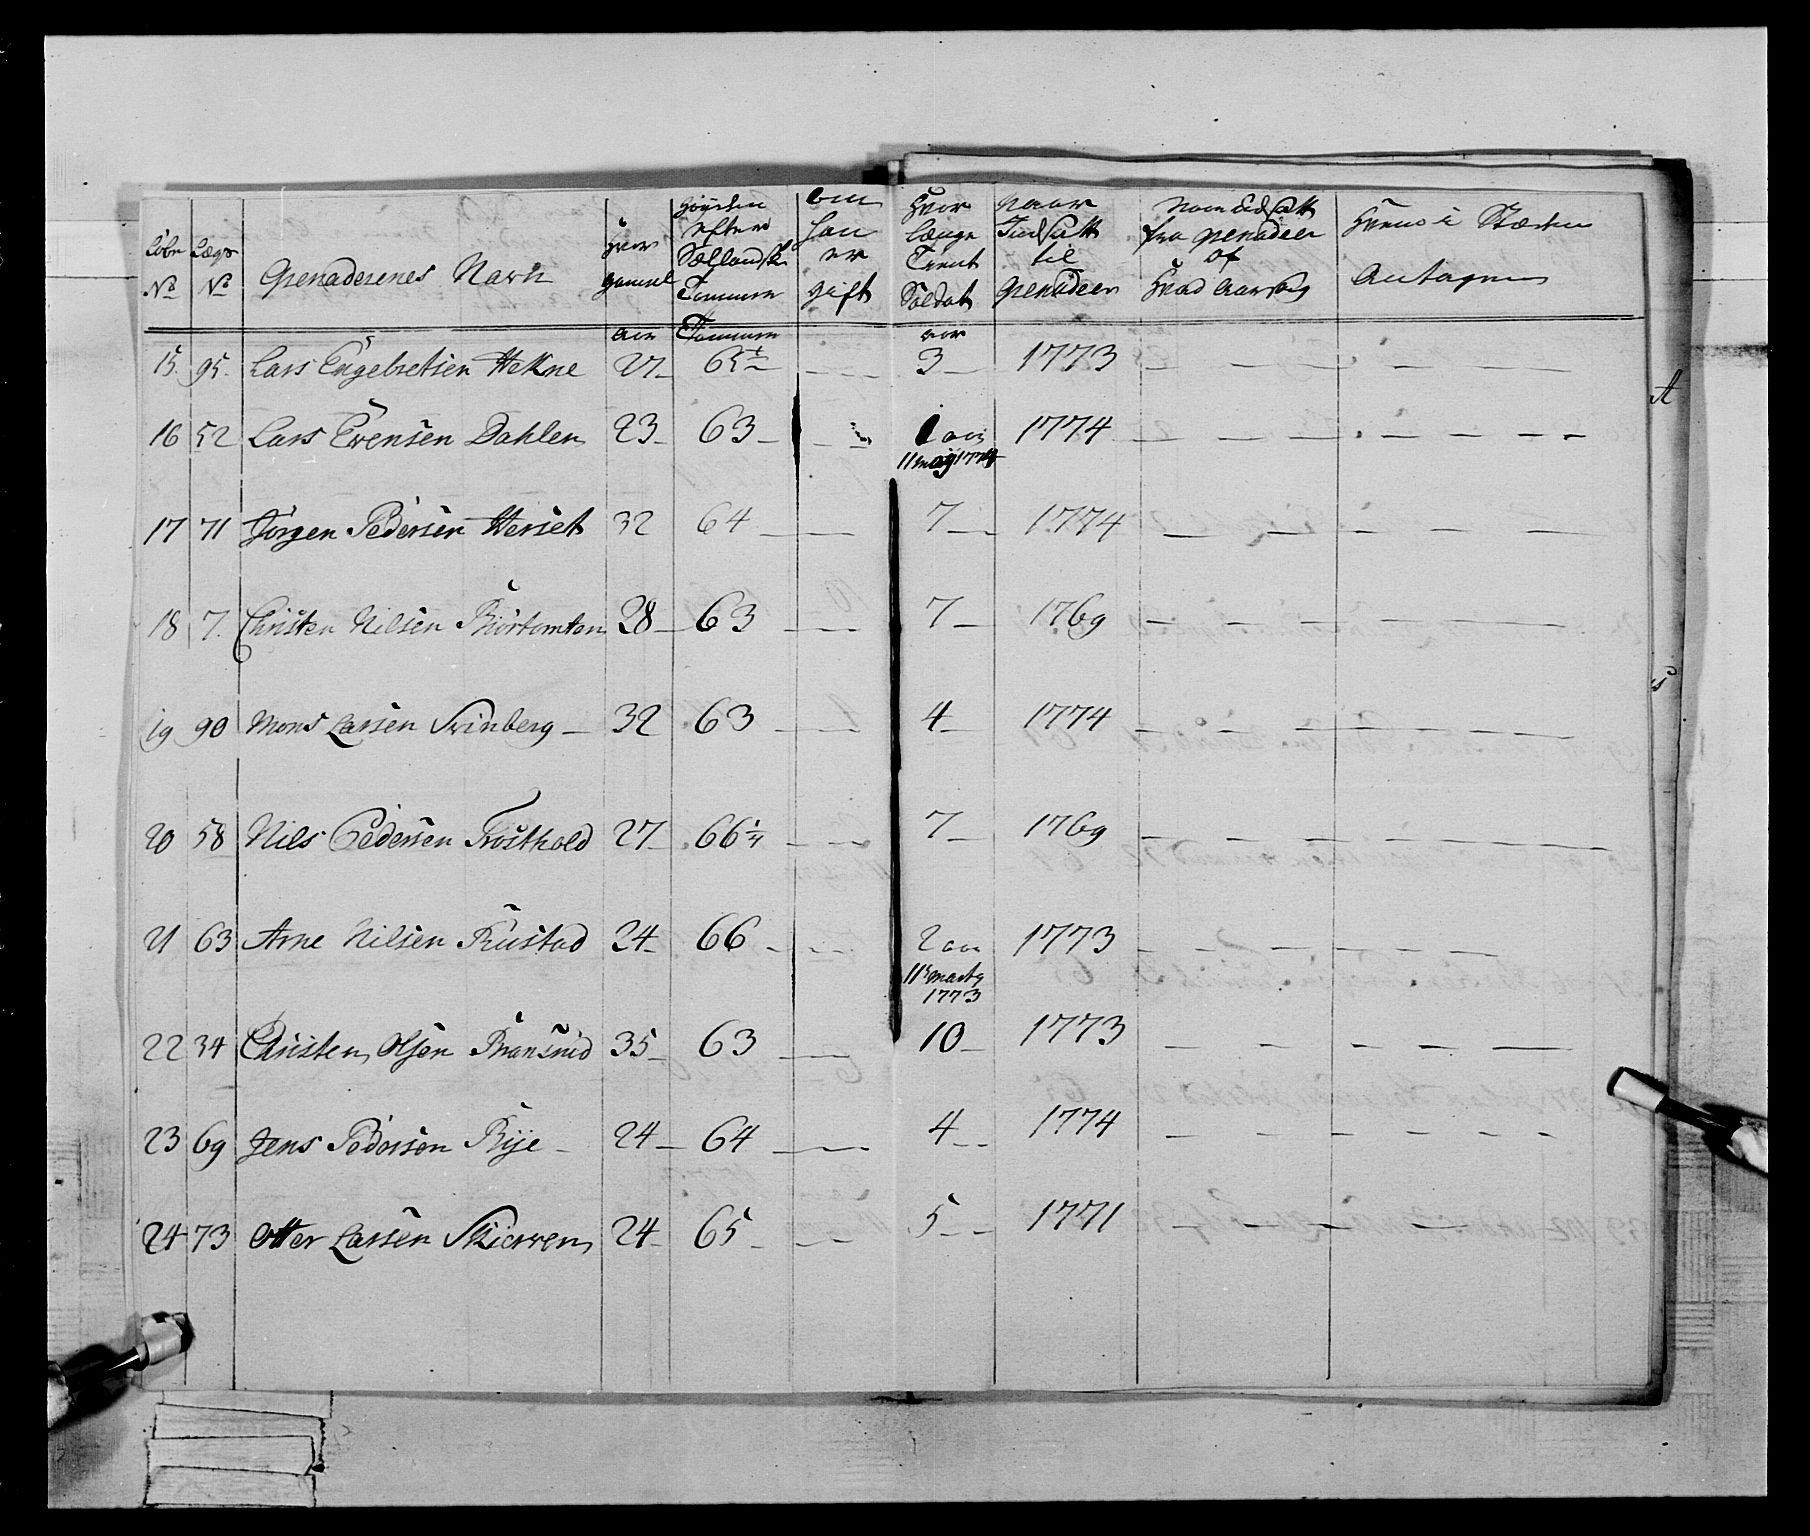 Löbe No | Lægs No | Grenaderenes Navn | Hvor gamel | Höyden efter Sællandsk Tommer | om han er gift | Hvor længe Tient Soldat | Naar Indsatt til Grenadeer | Naar udsatt fra Grenadeer of Hvad Aarsag | Hvem i Stæden Antagen
aar | Tommer | aar
15. | 95. | Lars Engebretsen Hekne | 27 | 65 | 3 | 1773
16 | 52 | Lars Evensen Dahlen | 23 | 63 | 1 aar | 1774
11 maj 1774
17 | 71 | Jörgen Pedersen Herset | 32 | 64 | 7 | 1774
18 | 7. | Christen Nilsen | 28 | 63 | 7 | 1769
19 | 90 | Mons Larsen Svinberg | 32 | 63 | 4 | 1774
20 | 58 | Nils Pedersen | 27 | 66 1/4 | 7 | 1769
21 | 63 | Arne Nilsen Rustad | 24 | 66 | 2 aar | 1773
11 marty
1773
22 | 34 | Christen Olsen | 35 | 63 | 10 | 1773
23 | 69 | Jens Pedersen Rije | 24 | 64 | 4 | 1774
24 | 73 | Otter Larsen Skierven | 24 | 65 | 5 | 1771